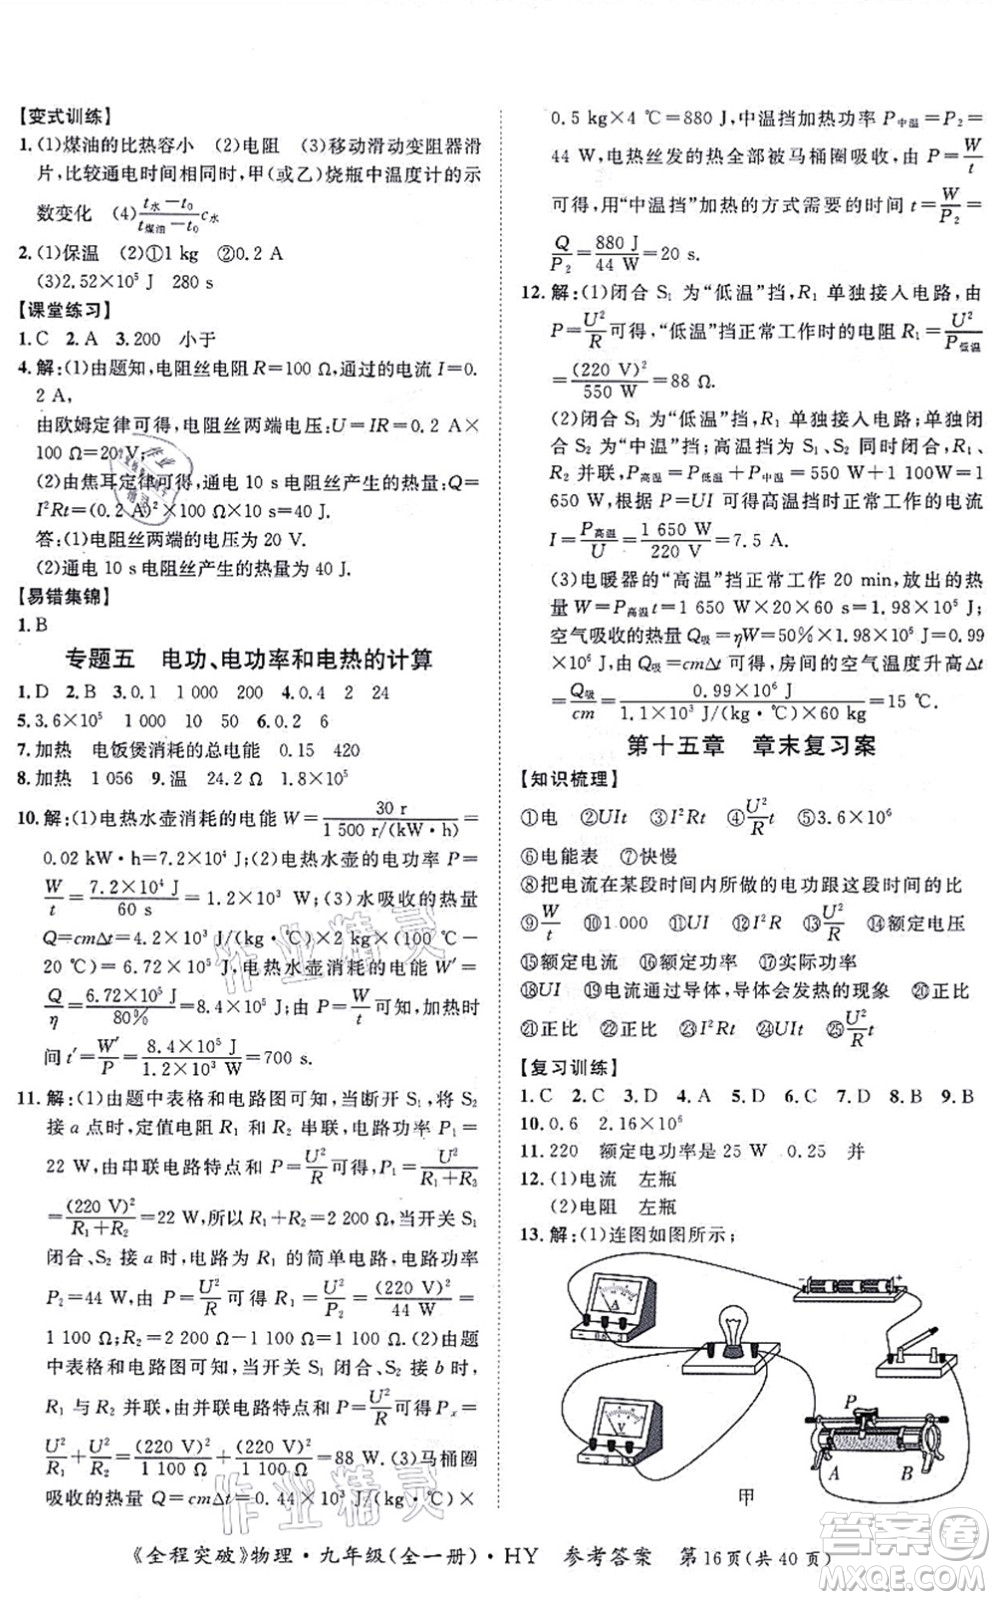 【变式训练】
1.(1)煤油的比热容小　(2)电阻　(3)移动滑动变阻器滑
片,比较通电时间相同时,甲(或乙)烧瓶中温度计的示
数变化　(4)(t水−t0)/(t煤油−t0) c水
2.(1)保温　(2)①1 kg　②0.2 A
(3)2.52×10⁵ J　280 s
【课堂练习】
1.C　2.A　3.200　小于
4.解:(1)由题知,电阻丝电阻R=100 Ω,通过的电流 I=0.
2 A,
由欧姆定律可得,电阻丝两端的电压:U=IR=0.2 A×
100 Ω=20 V;
(2)由焦耳定律可得,通电 10 s电阻丝产生的热量:Q=
I²Rt=(0.2 A)²×100 Ω×10 s=40 J.
答:(1)电阻丝两端的电压为 20 V.
(2)通电 10 s电阻丝产生的热量为 40 J.
【易错集锦】
1.B
专题五　电功、电功率和电热的计算
1.D　2.B　3.0.1　1 000　200　4.0.4　2　24
5.3.6×10⁵　1 000　10　50　6.0.2　6
7.加热　电饭煲消耗的总电能　0.15　420
8.加热　1 056　9.温　24.2 Ω　1.8×10⁵
10.解:(1)电热水壶消耗的电能 W=30 r/(1 500 r/(kW·h))=
0.02 kW·h=7.2×10⁴ J;(2)电热水壶的电功率 P=
W/t=7.2×10⁴ J/60 s=1.2×10³ W;(3)水吸收的热量
Q=cmΔt=4.2×10³ J/(kg·℃)×2 kg×(100 ℃−
20 ℃)=6.72×10⁵ J,电热水壶消耗的电能 W′=
Q/η=6.72×10⁵ J/80%=8.4×10⁵ J,由 P=W/t可知,加热时
间 t′=W′/P=8.4×10⁵ J/1.2×10³ W=700 s.
11.解:(1)由题中表格和电路图可知,当开关 S1 断开,将 S2
接 a 点时,定值电阻 R1 和 R2 串联,电路功率 P1=
22 W,由串联电路特点和 P=U²/R可得,P1=U²/(R1+R2)
=(220 V)²/(R1+R2)=22 W,所以 R1+R2=2 200 Ω,当开关 S1
闭合、S2 接 a 时,电路为 R1 的简单电路,电路功率
P2=44 W,由 P=U²/R可得 R1=U²/P2=(220 V)²/44 W=
1 100 Ω,R2=1 100 Ω−1 100 Ω=1 100 Ω;(2)由题
中表格和电路图可知,当开关 S1 闭合、S2 接 b 时,
R1 与 R2 并联,由并联电路特点和 P=U²/R可得 Px=
U²/R1+U²/R2=(220 V)²/1 100 Ω+(220 V)²/1 100 Ω=88 W.(3)马桶圈
吸收的热量 Q=cmΔt=0.44×10³ J/(kg·℃)×
0.5 kg×4 ℃=880 J,中温挡加热功率 P中温=P2=
44 W,电热丝发热量全部被马桶圈吸收,由 P=W/t
可得,用“中温挡”加热的方式需要的时间 t=W/P2=
Q/P2=880 J/44 W=20 s.
12.解:(1)闭合 S1 为“低温”挡,R1 单独接入电路,由
P=U²/R可得,“低温”挡正常工作时的电阻 R1=U²/P低温
=(220 V)²/550 W=88 Ω.
(2)闭合 S1 为“低温”挡,R1 单独接入电路;闭合
S2 为“中温”挡;高温挡为 S1、S2 同时闭合,R1、
R2 并联,P高温=P低温+P中温=550 W+1 100 W=1
650 W,根据 P=UI 可得高温挡时正常工作的电流
I=P高温/U=1 650 W/220 V=7.5 A.
(3)电暖器的“高温”挡正常工作 20 min,放出的热
量 W=P高温t=1 650 W×20×60 s=1.98×10⁶ J,
空气吸收的热量 Q吸=ηW=50%×1.98×10⁶ J=0.99
×10⁶ J,由 Q吸=cmΔt 可得,房间的空气温度升高Δt
=Q吸/cm=0.99×10⁶ J/(1.1×10³ J/(kg·℃)×60 kg)=15 ℃.
第十五章　章末复习案
【知识梳理】
①电　②UIt　③I²Rt　④U²/R t　⑤3.6×10⁶
⑥电能表　⑦快慢
⑧把电流在某段时间内所做的电功跟这段时间的比
⑨W/t　⑩1 000　⑪UI　⑫I²R　⑬U²/R　⑭额定电压
⑮额定电流　⑯额定功率　⑰实际功率
⑱UI　⑲电流通过导体,导体会发热的现象　⑳正比
㉑正比　㉒正比　㉓I²Rt　㉔UIt　㉕U²/R t
【复习训练】
1.C　2.C　3.D　4.A　5.D　6.D　7.D　8.B　9.B
10.0.6　2.16×10⁶
11.220　额定电功率是 25 W　0.25　并
12.(1)电流　左瓶
(2)电阻　左瓶
13.解:(1)连图如图所示;
A
V
P
A
B
甲
《全程突破》物理·九年级(全一册)·HY　参考答案　第16页(共40页)
作业精灵
作业精灵
MXQE.COM